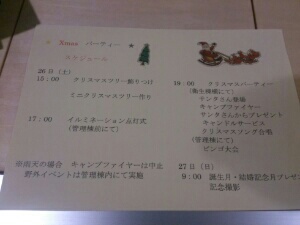 Xmas パーティー
スケジュール
26日(土)
15:00 クリスマスツリー飾りつけ
ミニクリスマスツリー作り
17:00 イルミネーション点灯式
(管理棟前にて)
※雨天の場合 キャンプファイヤーは中止
野外イベントは管理棟内にて実施
18:00 クリスマスパーティー
サンタさん登場
キャンプファイヤー
サンタさんからプレゼント
キャンドルサービス
クリスマスソング合唱
(管理棟にて)
ビンゴ大会
27日(日)
9:00 誕生月・結婚記念月プレゼント
記念撮影